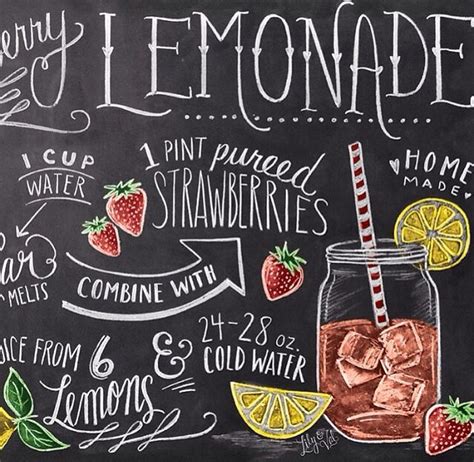 erry LEMONADE
1 CUP
WATER
1 PINT pureed
STRAWBERRIES
HOME
MADE
MELTS
COMBINE WITH
ICE FROM 6
Lemons
& 24-28 oz.
COLD WATER
Lily & Val